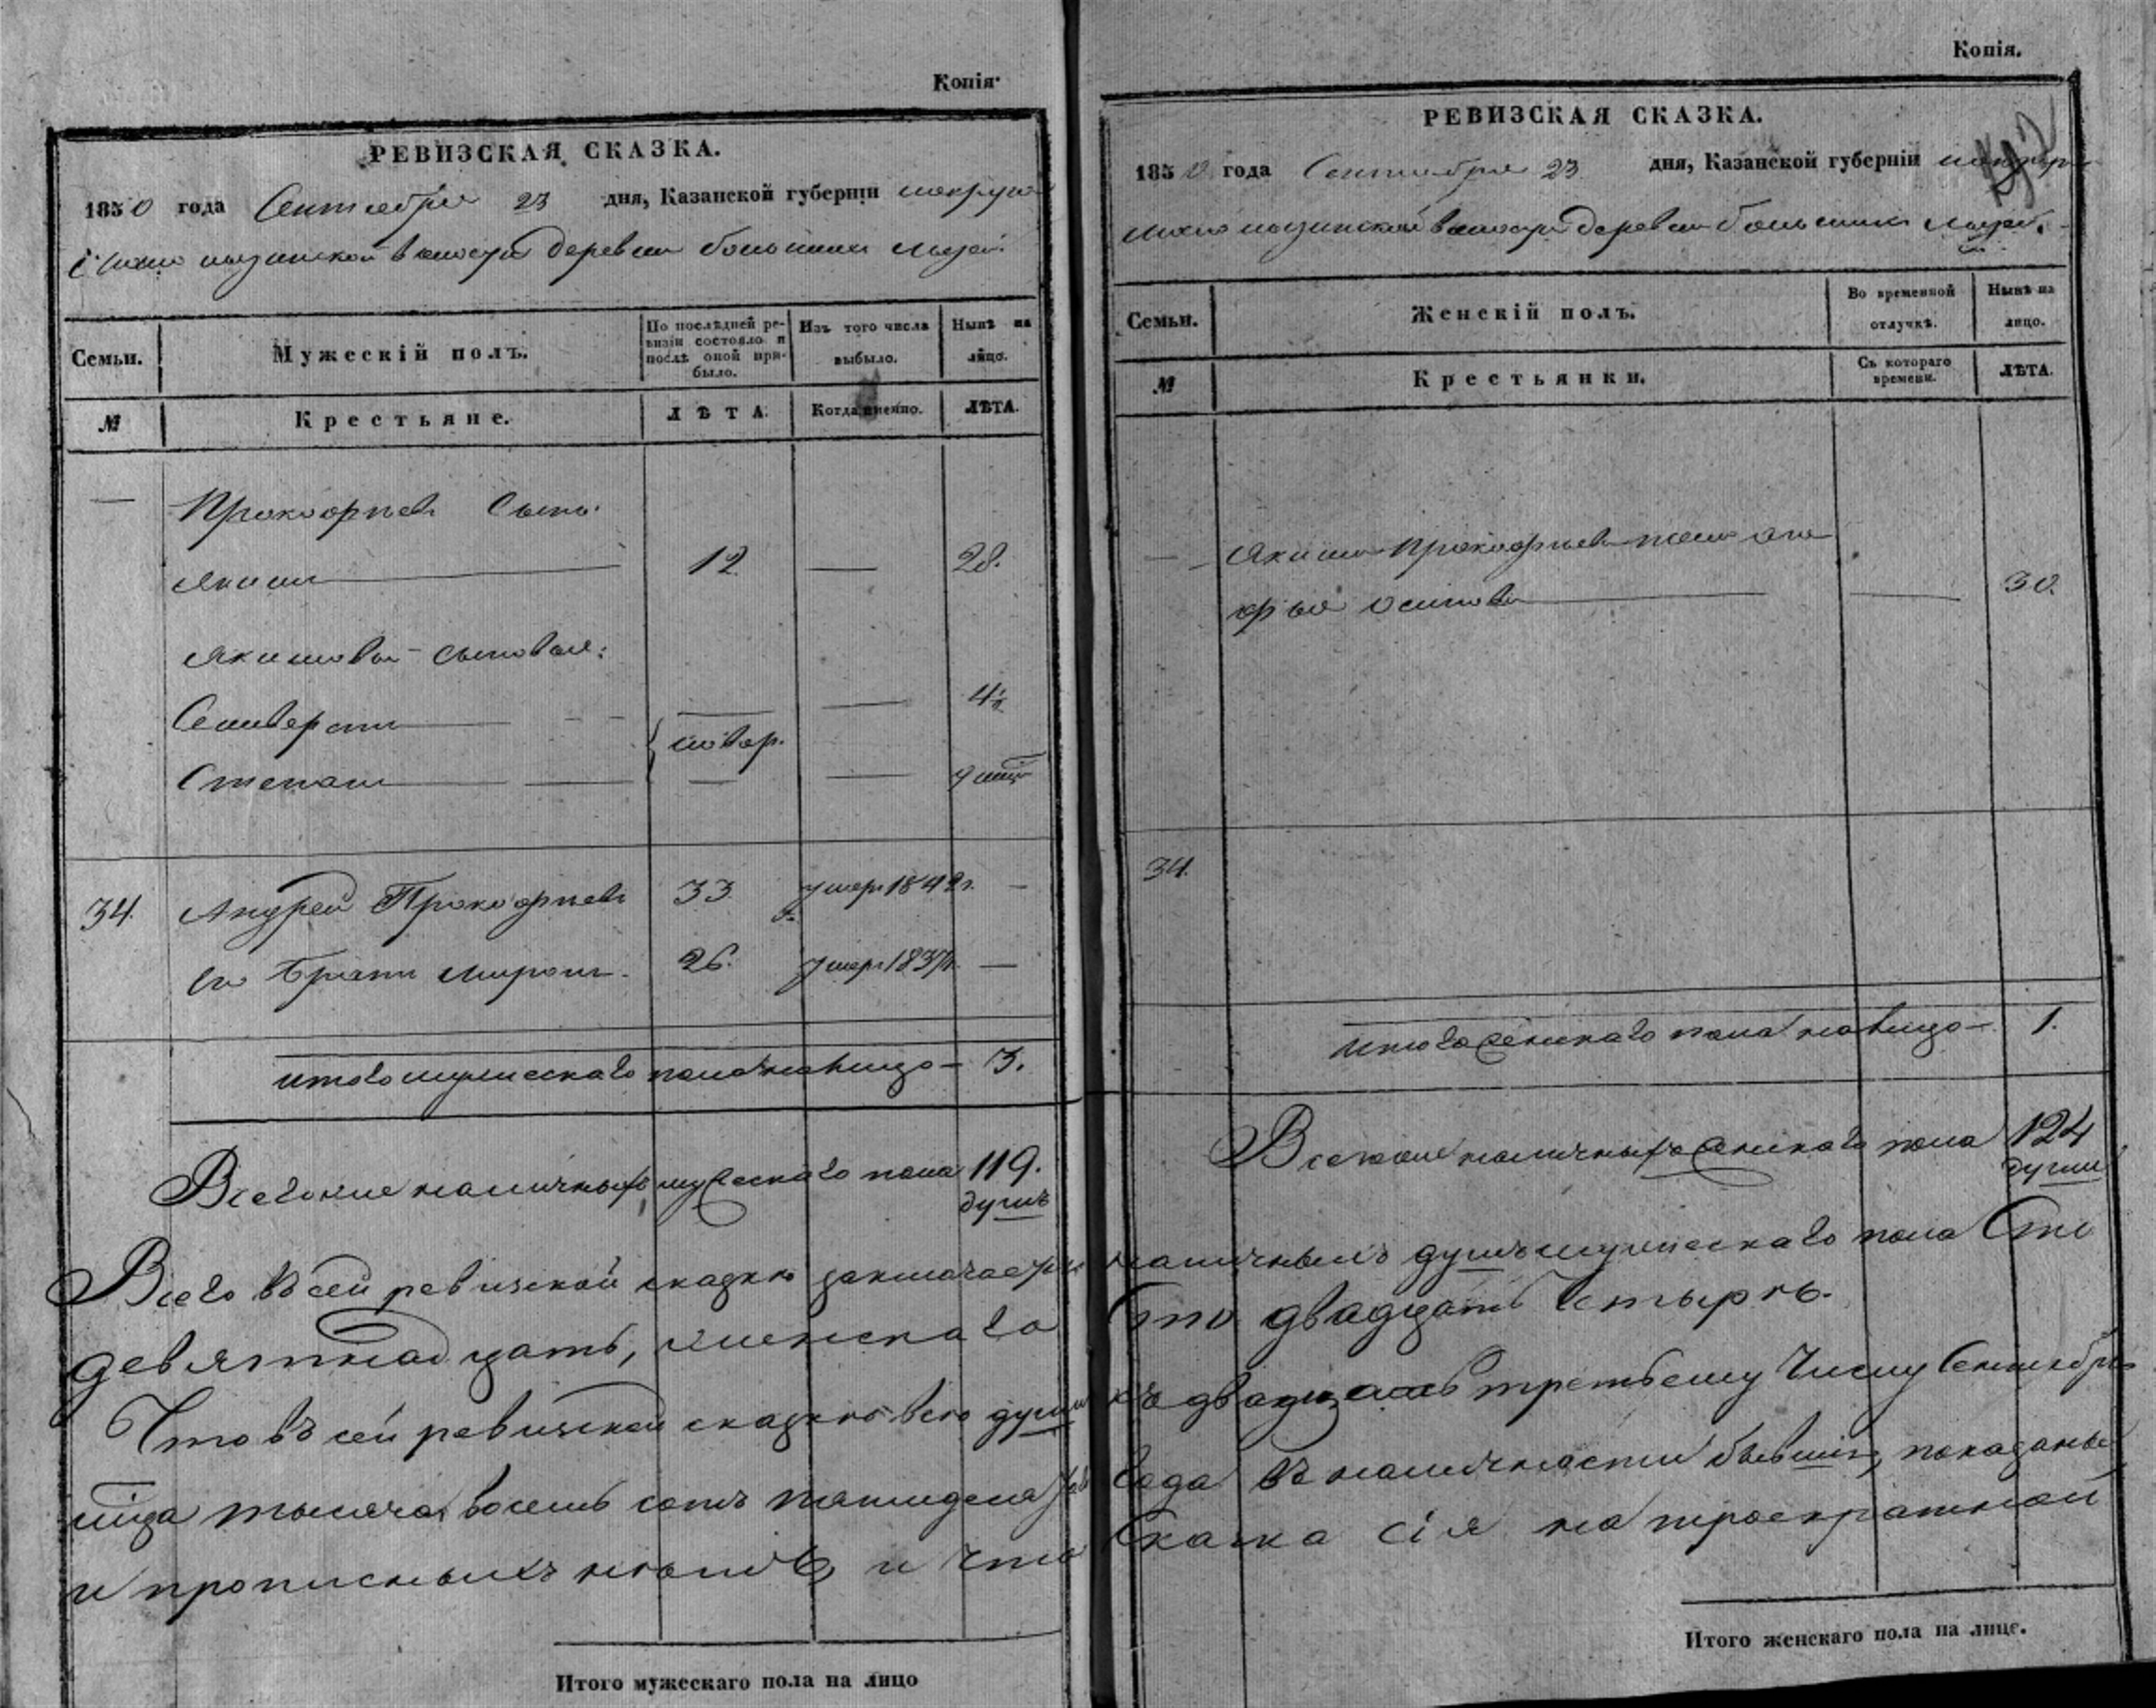 Копія.
РЕВИЗСКАЯ СКАЗКА.
1850 года Сентября 23 дня, Казанской губерніи
волости деревни большихъ
Семьи.
Мужескій полъ.
По послѣдней ревизіи состояло и послѣ оной прибыло.
Изъ того числа выбыло.
Нынѣ на лицо.
№
Крестьяне.
ЛѢТА.
Когда именно.
ЛѢТА.
Прокофьевъ сынъ
Якимъ 12 — 28.
Якимовы сыновья:
Селиверстъ — 4½
новор.
Степанъ — —
34. Андрей Прокофьевъ 33 умер. 1842 г. —
ево братъ Миронъ 26. умер. 1837 г. —
итого мужескаго пола на лицо — 3.
Всего же наличныхъ мужескаго пола 119.
душъ
Копія.
РЕВИЗСКАЯ СКАЗКА.
1850 года Сентября 23 дня, Казанской губерніи
волости деревни большихъ
Семьи.
Женскій полъ.
Во временной отлучкѣ.
Нынѣ на лицо.
№
Крестьянки.
Съ котораго времени.
ЛѢТА.
— Якима Прокофьева жена
Осипова — 30.
34.
итого женскаго пола на лицо — 1.
Всего же наличныхъ женскаго пола 124
души
Всего в сей ревизской сказкѣ заключается наличныхъ душъ мужескаго пола сто
девятнадцать, женскаго сто двадцать четыре.
Что въ сей ревизской сказкѣ всѣ души къ двадцать третьему числу Сентября
мца тысяча восемь сотъ пятидесятаго года въ наличности бывшія, показаны
и прописныхъ нѣтъ, и что сказка сія на троекратной
Итого мужескаго пола на лицо
Итого женскаго пола на лице.